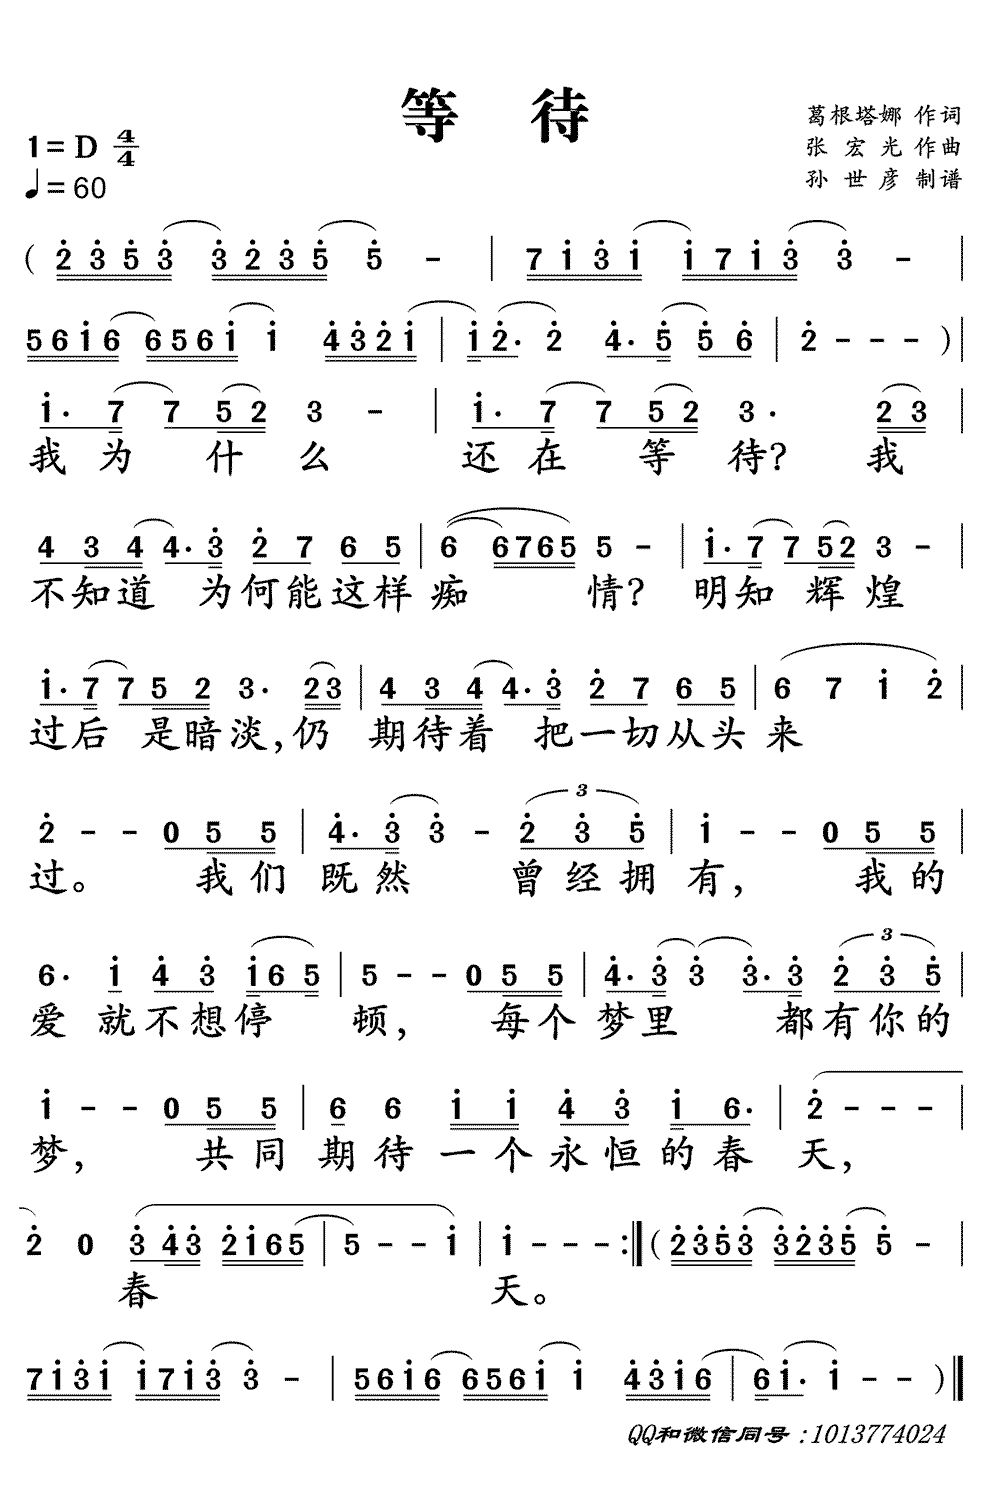 等 待
葛根塔娜 作词
1=D 4/4
张 宏 光 作曲
♩=60
孙 世 彦 制谱
( 2̇3̇5̇3̇ 3̇2̇3̇5̇ 5̇ - | 71̇3̇1̇ 1̇71̇3̇ 3̇ - |
561̇6 6561̇ 1̇ 4̇3̇2̇1̇ | 1̇2̇. 2̇ 4̇. 5̇ 5̇6̇ | 2̇ - - - ) |
1̇. 7 7 52 3 - | 1̇. 7 7 52 3. 23 |
我 为 什 么 还 在 等 待? 我
4 3 4 4.3̇ 2̇ 7 6 5 | 6 6765 5 - | 1̇.7 7 52 3 - |
不知道 为何能这样痴 情? 明知 辉 煌
1̇.7 7 5 2 3. 23 | 4 3 4 4.3̇ 2̇ 7 6 5 | 6 7 1̇ 2̇ |
过后 是暗淡,仍 期待着 把一切从头来
2̇ - - 0 5 5 | 4̇. 3̇ 3̇ - 3 2̇ 3̇ 5̇ | 1̇ - - 0 5 5 |
过。 我们 既然 曾经拥有, 我的
6. 1̇ 4̇ 3̇ 1̇65 | 5 - - 0 5 5 | 4̇. 3̇ 3̇ 3̇. 3̇ 3 2̇ 3̇ 5̇ |
爱 就不想停 顿, 每个梦里 都有你的
1̇ - - 0 5 5 | 6 6 1̇ 1̇ 4̇ 3̇ 1̇ 6. | 2̇ - - - |
梦, 共同期待一个永恒的春 天,
2̇ 0 3̇ 4̇3̇ 2̇1̇65 | 5 - - 1̇ | 1̇ - - - :‖ ( 2̇3̇5̇3̇ 3̇2̇3̇5̇ 5̇ - |
春 天。
71̇3̇1̇ 1̇71̇3̇ 3̇ - | 561̇6 6561̇ 1̇ 4̇3̇1̇6 | 61̇. 1̇ - - ) ‖
QQ和微信同号:1013774024